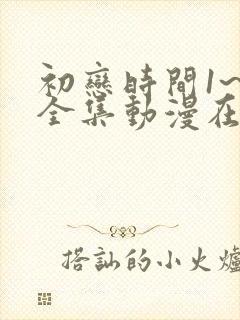 初戀時間1~
全集動漫在
搭訕的小火爐